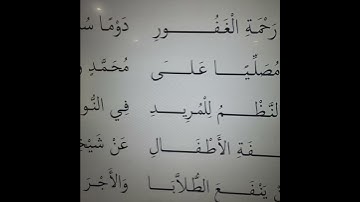 رَحْمَةِ الْغَفُورِ دَوْمًا
مُصَلِّيًا عَلَى مُحَمَّدٍ
النَّظْمُ لِلْمُرِيدِ فِي
الْأَطْفَالِ عَنْ
يَنْفَعَ الطُّلَّابَا وَالْأَجْرَ